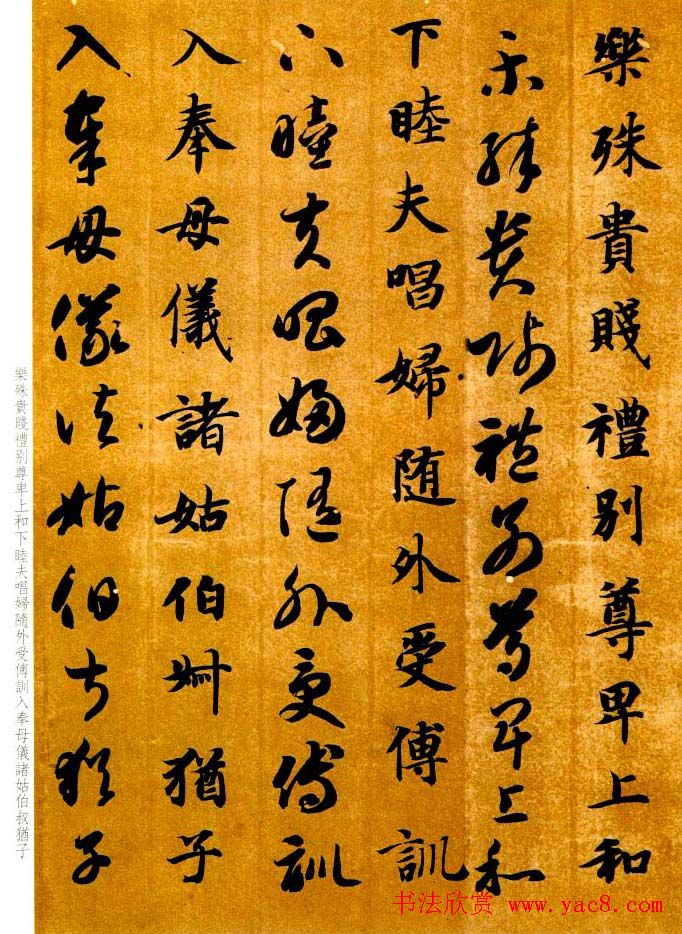 樂殊貴賤禮别尊卑上和
樂殊貴賤禮别尊卑上和
下睦夫唱婦随外受傅訓
下睦夫唱婦随外受傅訓
入奉母儀諸姑伯叔猶子
入奉母儀諸姑伯叔猶子
樂殊貴賤禮别尊卑上和下睦夫唱婦隨外受傅訓入奉母儀諸姑伯叔猶子
书法欣赏 www.yac8.com